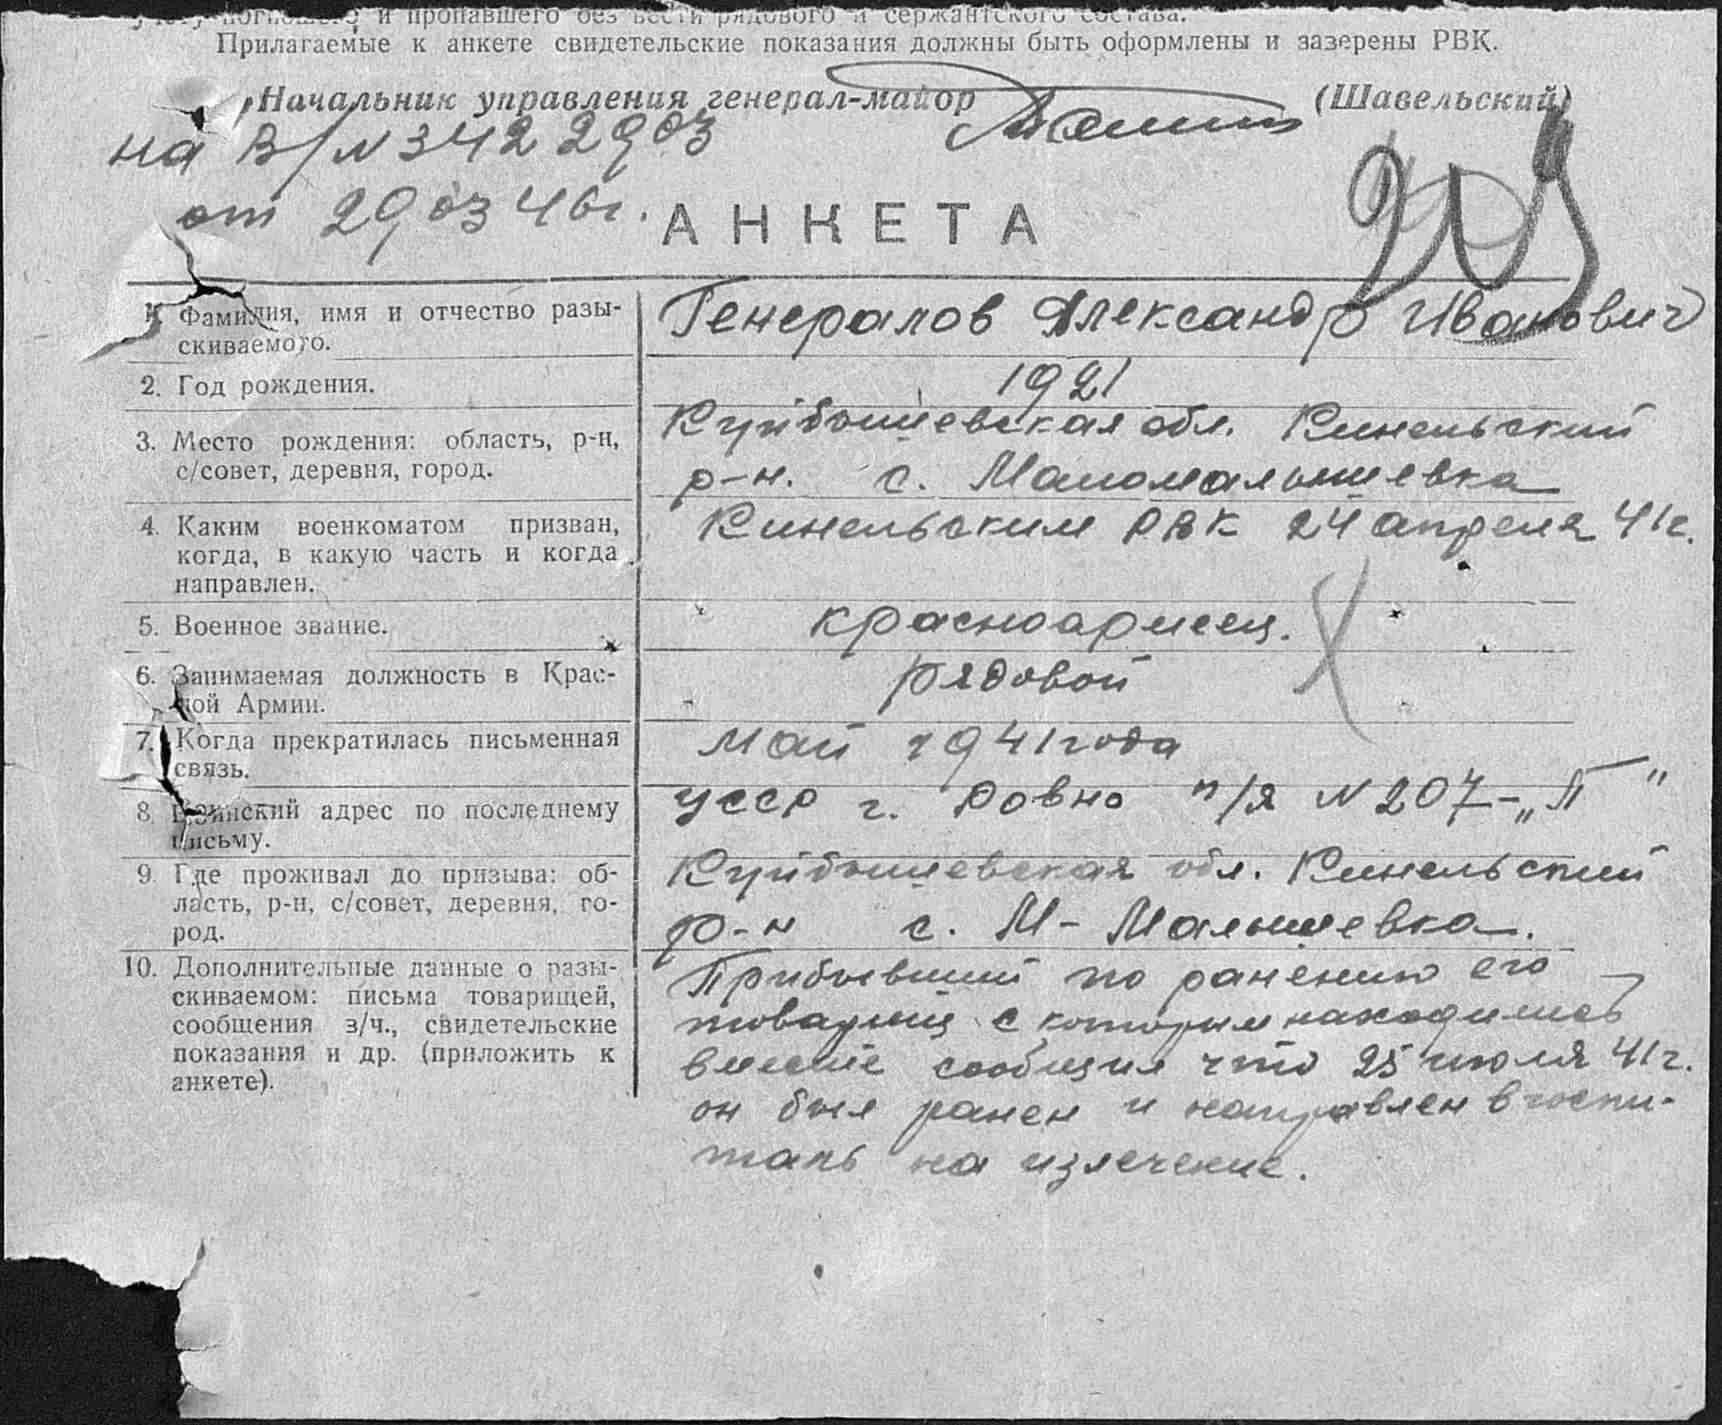 учету погибшего и пропавшего без вести рядового и сержантского состава.
Прилагаемые к анкете свидетельские показания должны быть оформлены и заверены РВК.
Начальник управления генерал-майор (Шавельский)
на В/N 342 29 03
от 29 03 46г.
АНКЕТА
1. Фамилия, имя и отчество разы-
скиваемого.
Генералов Александр Иванович
2. Год рождения.
1921
3. Место рождения: область, р-н,
с/совет, деревня, город.
Куйбышевская обл. Кинельский
р-н. с. Маломалышевка
4. Каким военкоматом призван,
когда, в какую часть и когда
направлен.
Кинельским РВК 24 апреля 41г.
5. Военное звание.
красноармеец.
6. Занимаемая должность в Крас-
ной Армии.
рядовой
7. Когда прекратилась письменная
связь.
май 1941 года
8. Воинский адрес по последнему
письму.
УССР г. Ровно п/я N 207-„П"
9. Где проживал до призыва: об-
ласть, р-н, с/совет, деревня, го-
род.
Куйбышевская обл. Кинельский
р-н с. М-Малышевка.
10. Дополнительные данные о разы-
скиваемом: письма товарищей,
сообщения в/ч., свидетельские
показания и др. (приложить к
анкете).
Прибывший по ранению его
товарищ с которым находились
вместе сообщил что 25 июля 41г.
он был ранен и направлен в госпи-
таль на излечение.